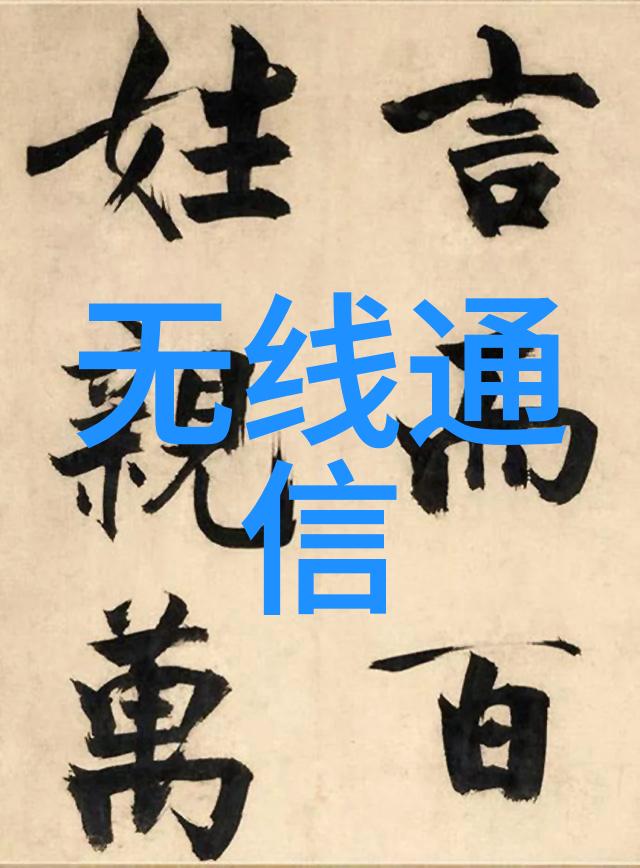 言而百
姓親萬
无线通
信